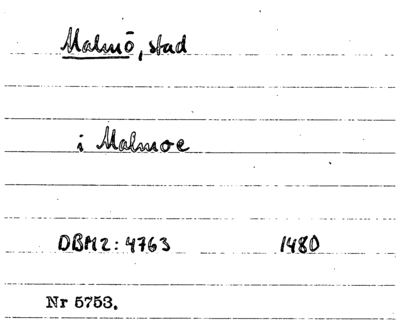 Malmö, stad
i Malmoe
DBM2: 4763 1480
Nr 5753.